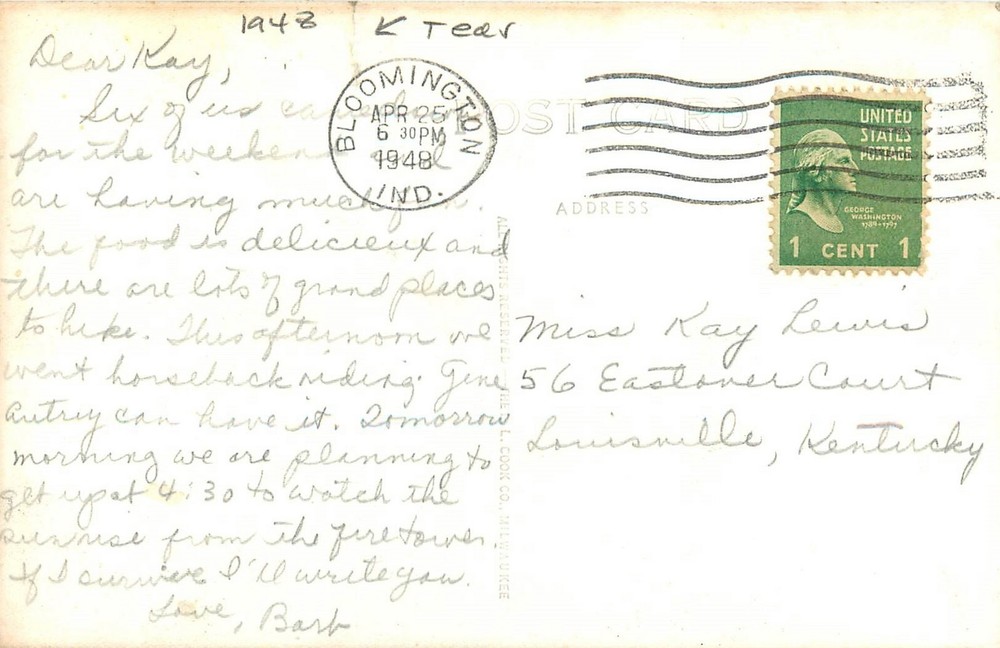 1948 ← Tear
Dear Kay,
Six of us came here
for the weekend and
are having much fun.
The food is delicieux and
there are lots of grand places
to hike. This afternoon we
went horseback riding. Gene
Autrey can have it. Tomorrow
morning we are planning to
get up at 4:30 to watch the
sunrise from the fire tower.
If I survive I'll write you.
Love, Barb
BLOOMINGTON
APR 25
6 30 PM
1948
IND.
POST CARD
ADDRESS
UNITED
STATES
POSTAGE
GEORGE
WASHINGTON
1789-1797
1 CENT 1
Miss Kay Lewis
56 Eastover Court
Louisville, Kentucky
RESERVED THE L. L. COOK CO., MILWAUKEE